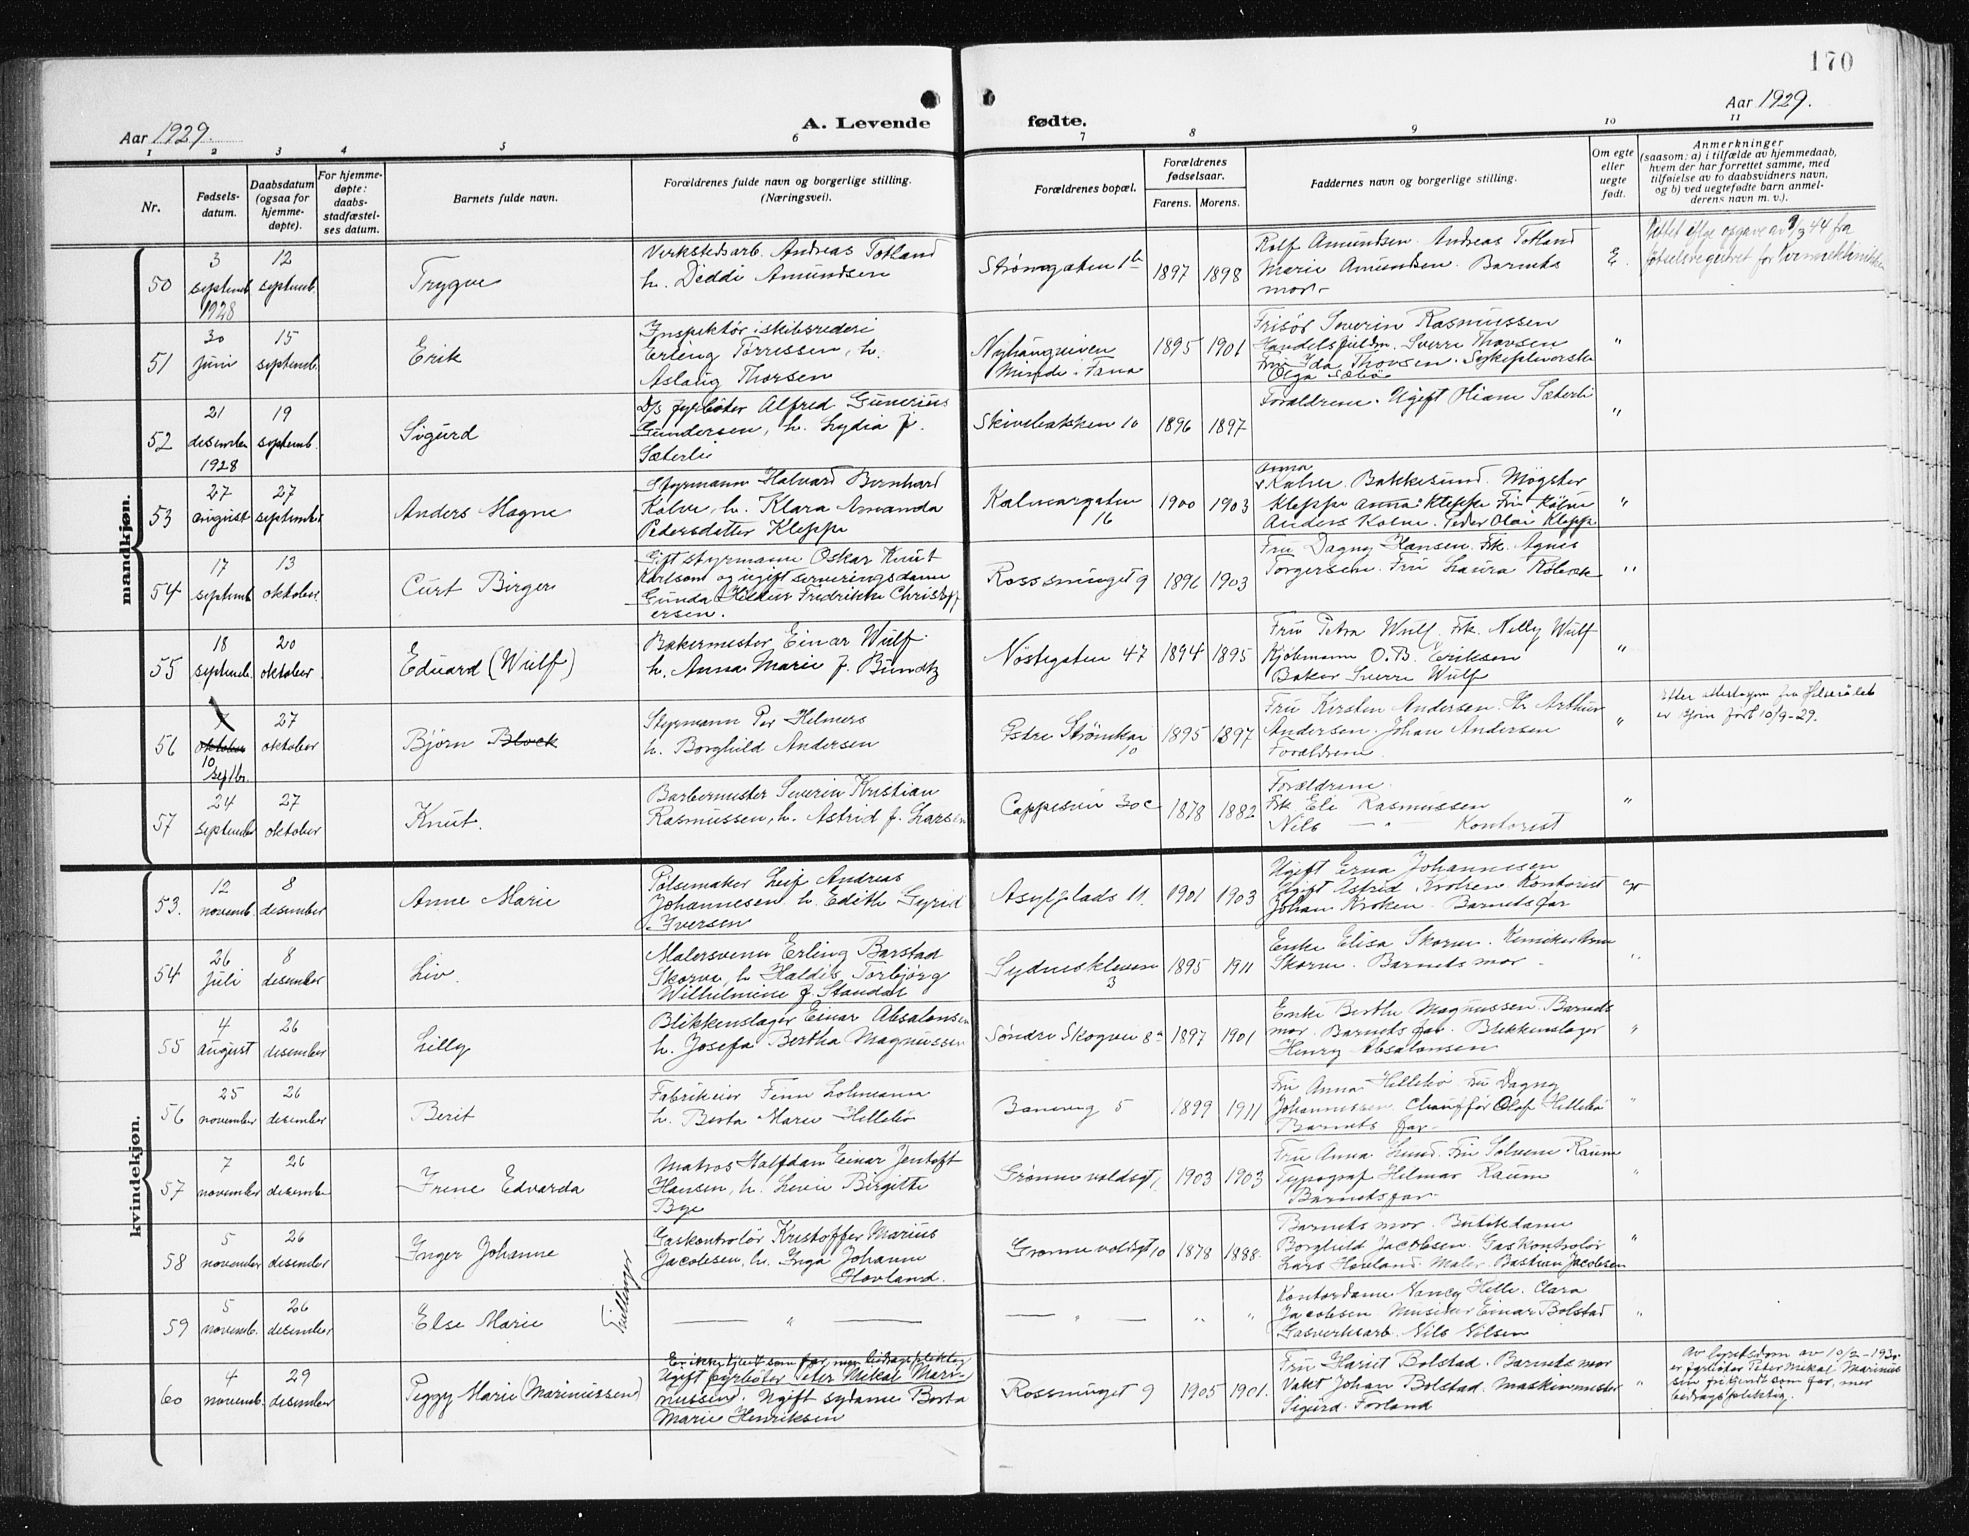 170
Aar 1929.
A. Levende fødte.
Aar 1929.
1 2 3 4 5 6 7 8 9 10 11
Nr.
Fødsels-
datum.
Daabsdatum
(ogsaa for
hjemme-
døpte).
For hjemme-
døpte:
daabs-
stadfæstel-
ses datum.
Barnets fulde navn.
Forældrenes fulde navn og borgerlige stilling.
(Næringsvei).
Forældrenes bopæl.
Forældrenes
fødselsaar.
Farens. Morens.
Faddernes navn og borgerlige stilling.
Om egte
eller
uegte
født.
Anmerkninger
(saasom: a) i tilfælde av hjemmedaab,
hvem der har forrettet samme, med
tilføielse av to daabsvidners navn,
og b) ved uegtefødte barn anmel-
derens navn m. v.).
mandkjøn.
50
3
septemb.
1928
12
septemb.
Trygve
Verkstedsarb. Andreas Totland
h. Diddi Amundsen
Strømgaten 1b
1897 1898
Rolf Amundsen. Andreas Totland
Marie Amundsen. Barnets
mor.
E.
Rettet opgave av 9/3 44 fra
fødselsregistret for Kvinneklinikken
51
30
juni
15
septemb.
Erik
Inspektør i skibsrederi
Erling Tørressen, h.
Aslaug Thorsen
Minde i Fana
1895 1901
Frisør Severin Rasmussen
Handelsfuldm. Sverre Thorsen
Fru Ida Thorsen. Sykepleierske
Olga Sæbø
"
52
21
desember
1928
19
septemb.
Sigurd
D/s fyrbøter Alfred Gunerius
Gundersen, h. Lydia f.
Sæterli
Skivebakken 10
1896 1897
Forældrene. Ugift Sæterli
"
53
27
august
27
september
Anders Magne
Styrmann Halvard Bernhard
Kolve, h. Klara Amanda
Pedersdatter Kleppe
Kalmargaten
16
1900 1903
Anna
Kolve. Bakkesund. Møgster
Kleppe Anna Kleppe Fru Kolve
Anders Kolve. Peder Olai Kleppe
"
54
17
septemb.
13
oktober.
Curt Birger
Gift styrmann Oskar Knut
Karlsson og ugift serveringsdame
Gunda Fredrikke Christof-
ersen.
Rossmuget 9
1896 1903
Fru Dagny Hansen. Frk. Agnes
Torgersen. Fru Laura
"
55
18
septemb.
20
oktober
Eduard (Wulf)
Bakermester Einar Wulf
h. Anna Marie f. Bundtz
Nøstegaten 47
1894 1895
Fru Petra Wulf. Frk. Nelly Wulf
Kjøbmann O.B. Eriksen
Baker Sverre Wulf
"
56
7
oktober
10
septbr.
27
oktober
Bjørn Block
Styrmann Per Helmers
h. Borghild Andersen
Østre Strømkai
10
1895 1897
Fru Kirsten Andersen. Hr. Arthur
Andersen. Johan Andersen
Forældrene.
"
Efter attestasjon fra Helserådet
er Bjørn født 10/9-29.
57
24
september
27
oktober
Knut.
Barbermester Severin Kristian
Rasmussen, h. Astrid f. Larsen
Cappesvei 30c
1878 1882
Forældrene.
Frk. Eli Rasmussen
Nils — " — Kontorist
"
kvindekjøn.
53.
12
novemb.
8
desember
Anne Marie
Pølsemaker Leif Andreas
Johannesen h. Edith Gyrid
Iversen
Asylplads 11.
1901 1903
Ugift Erna Johannesen
Ugift Astrid Kroken Kontorist
Johan Kroken. Barnets far
54
26
juli
8
desember
Liv.
Malersvenn Erling Barstad
Skorve, h. Haldis Torbjørg
Wilhelmine f. Standal
Sydneskleven
3
1895 1911
Enke Elisa Skorve. Arne
Skorve. Barnets mor.
"
55
4
august
26
desember
Lilly
Blikkenslager Einar Absalonsen
h. Josefa Bertha Magnussen
Søndre Skogvei 8a
1897 1901
Enke Berthe Magnussen. Barnets
mor. Barnets far. Blikkenslager
Henry Absalonsen
"
56
25
november
26
desember
Berit
Fabrikeier Finn Lohmann
h. Berta Marie Hillebø
Banevei 5
1899 1911
Fru Anna Hillebø. Fru Dagny
Johannessen. Chauffør Olaf Hillebø
Barnets far.
"
57
7
november
26
desember
Irene Edvarda
Matros Halfdan Einar Jentoft
Hansen, h. Birgitte
Bye
Grønnevoldsgt.
1903 1903
Fru Anna Lund. Fru Solveig Raum
Typograf Helmar Raum
Barnets far.
"
58
5
november
26
desember
Inger Johanne
Gaskontrolør Kristoffer Marius
Jacobsen, h. Inga Johanne
Hovland.
Grønnevoldsgt 10
1878 1888.
Barnets mor. Butikdame
Borghild Jacobsen. Gaskontrolør
Lars Hovland. Maler Bastian Jacobsen
"
Tvillinger
59
5
novemb.
26
desember
Else Marie
— " —
— " —
" "
Kontordame Nancy Hille. Clara
Jacobsen. Musiker Einar Bolstad
Gasverksarb. Nils Nilsen
"
60
4
novemb.
29
desember
Peggy Marie (Marinussen)
Er ikke som far men bidragspliktig
Ugift fyrbøter Peter Mikal Mari-
nussen. Ugift sydame Berta
Marie Henriksen
Rossmuget 9
1905 1901.
Fru Harriet Bolstad. Barnets mor
Vakt Johan Bolstad. Maskinmester
Sigurd Forland
"
Av lyretsdom av 10/2-1930
er fyrbøter Peter Mikal Marinus
sen frikjendt som far, mer
bidragspliktig.